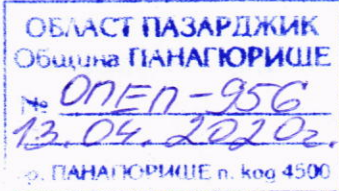 ОБЛАСТ ПАЗАРДЖИК
Община ПАНАГЮРИЩЕ
№ ОПЕП-956
13.04.2020г.
гр. ПАНАГЮРИЩЕ п. код 4500